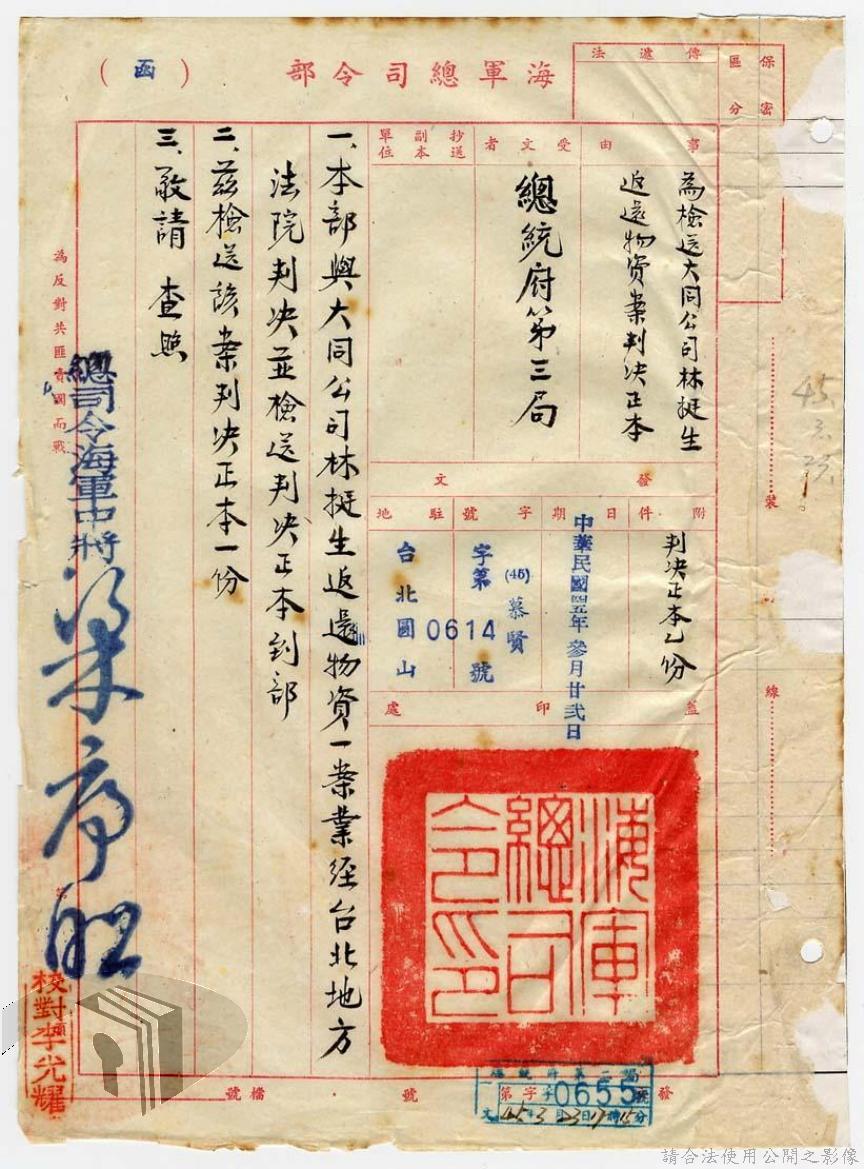 海軍總司令部
（函）
保密區分
傳遞法
事由
為檢送大同公司林挺生
返還物資案判決正本
受文者
總統府第三局
抄送副本單位
發文
附件
判決正本乙份
日期
中華民國四五年參月廿弍日
字號
(45)慕賢
字第0614號
駐地
台北圓山
蓋印處
海軍總司令印
一、本部與大同公司林挺生返還物資一案業經台北地方
法院判決並檢送判決正本到部
二、茲檢送該案判決正本一份
三、敬請 查照
總司令海軍中將梁序昭
為反對共匪賣國而戰
校對李光耀
裝
線
檔號
發號
總統府第二局
第字0655號
45年3月23日
請合法使用公開之影像